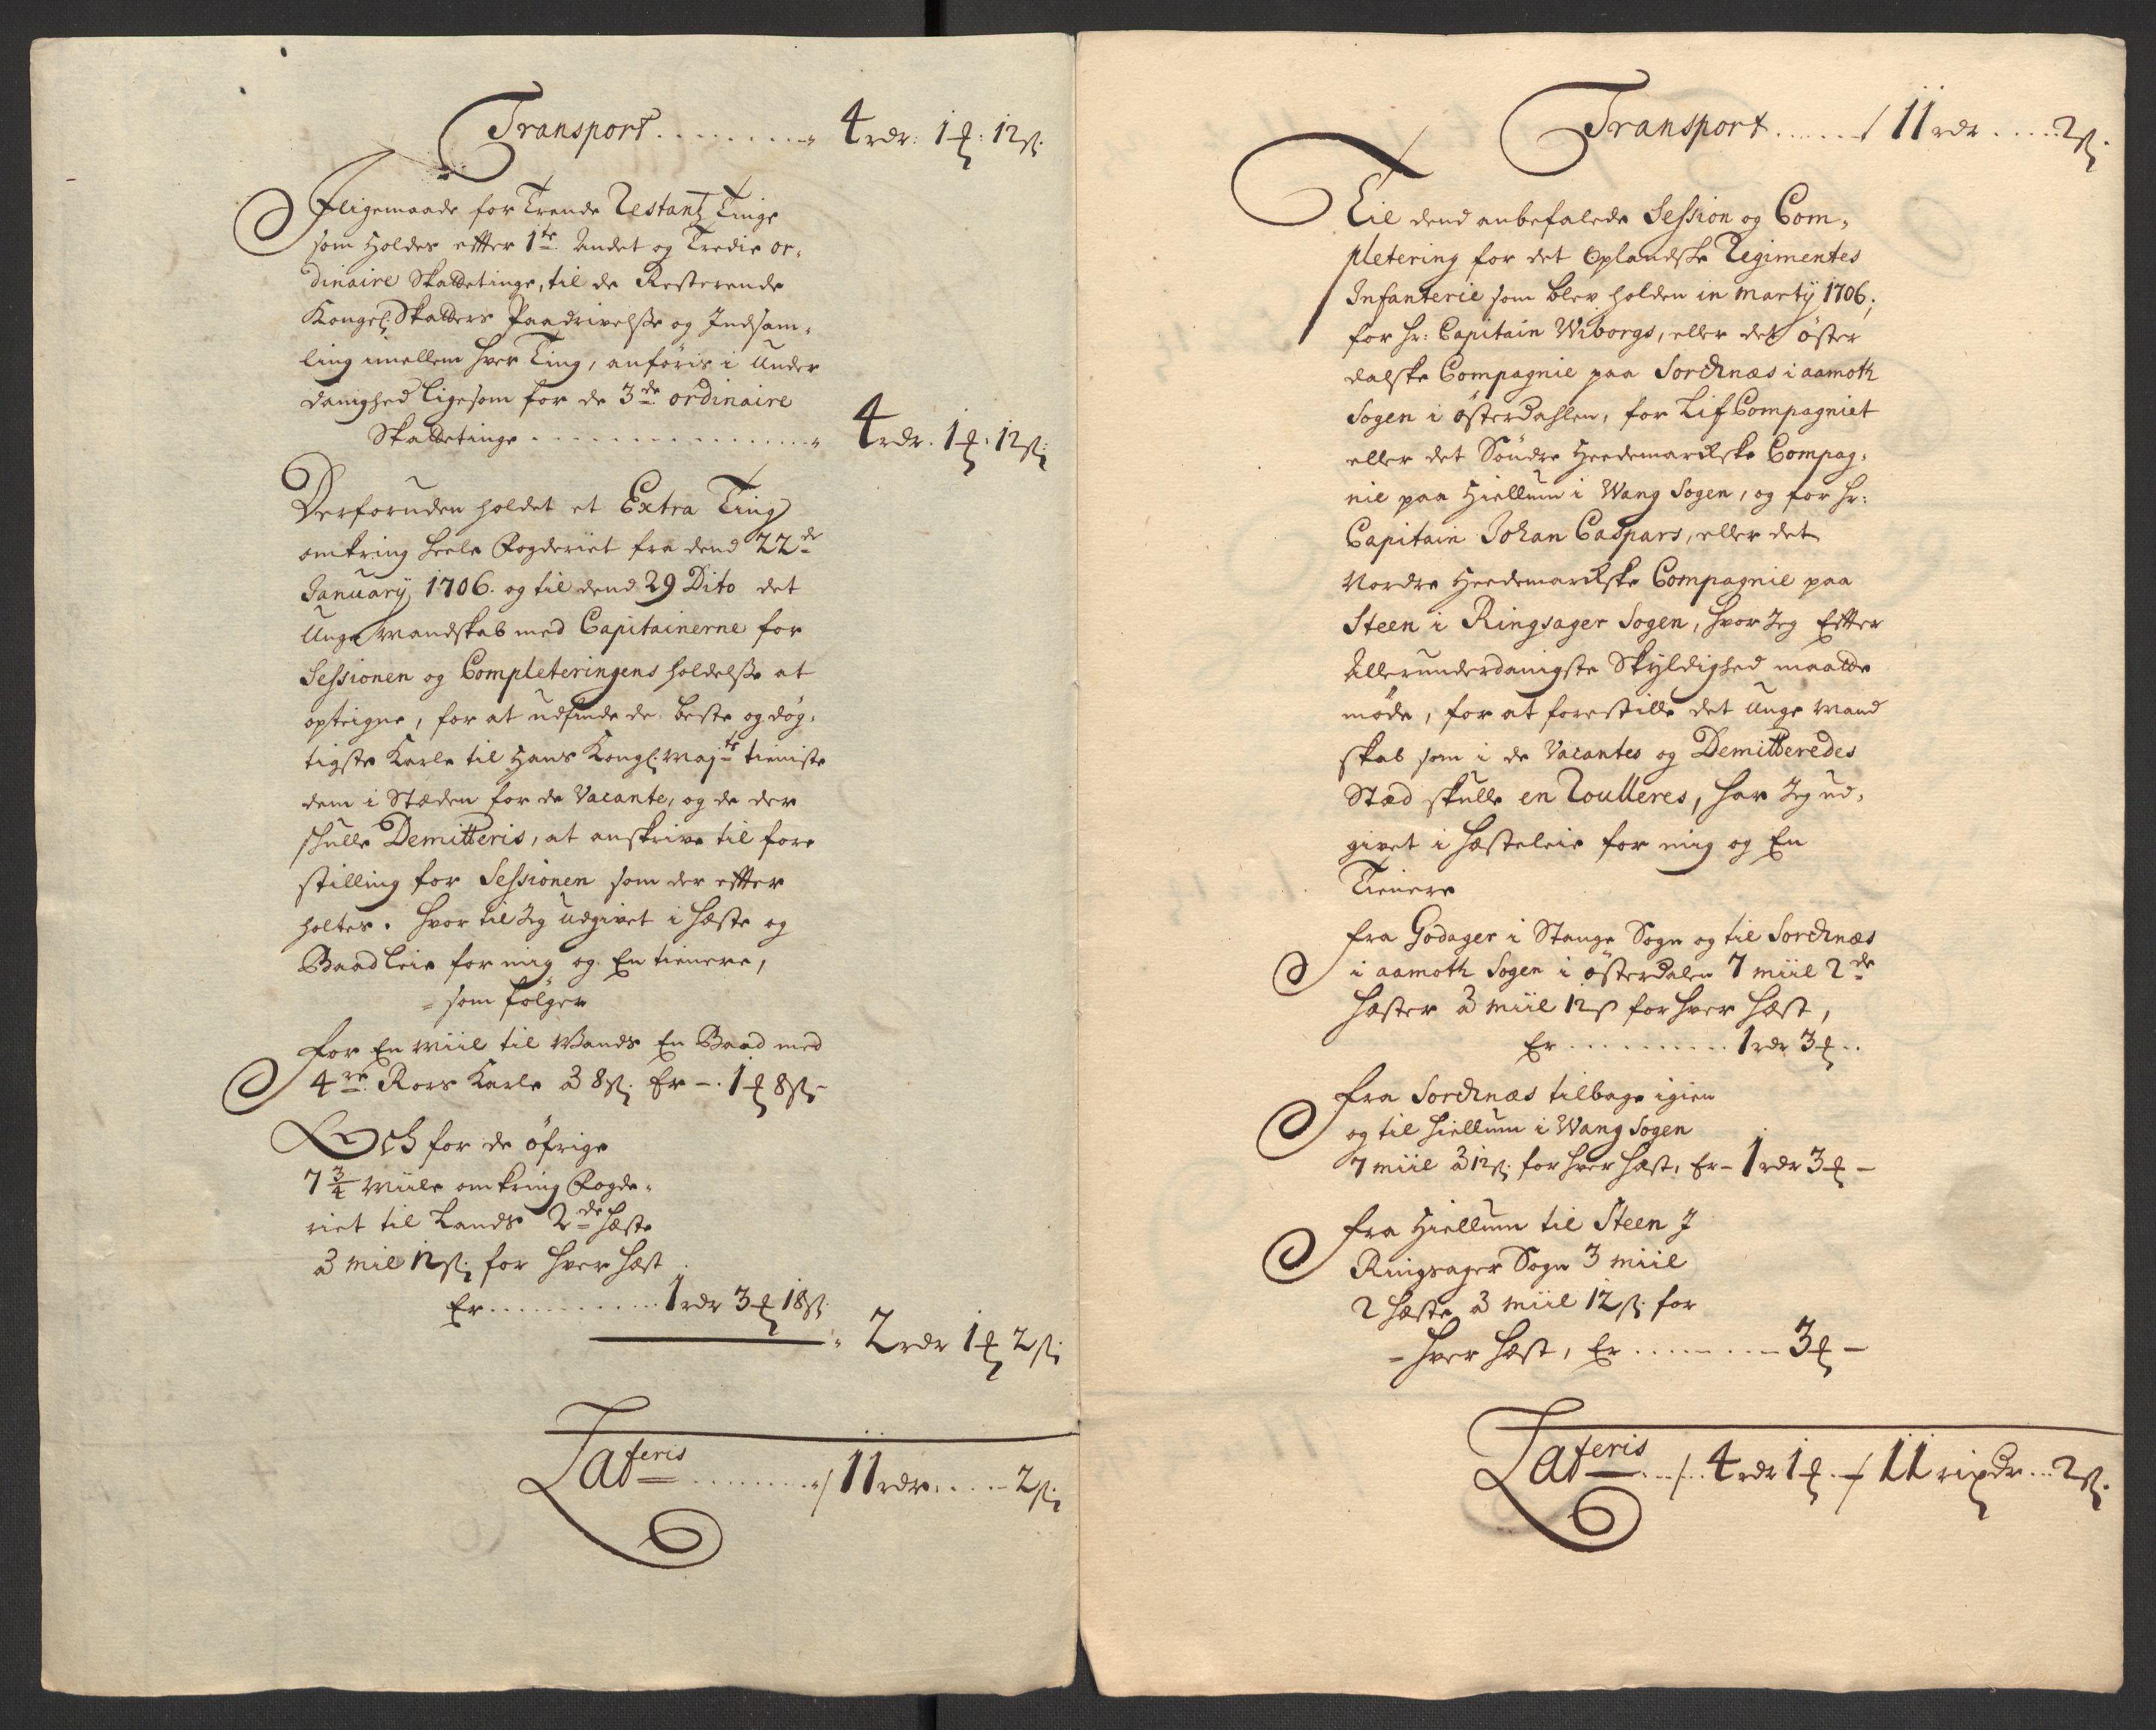 Transport . . . . . . . . 4 rdr: 1 ₰: 12 ß:
J ligemaade for Trende Restantz Tinge
som Holdes effter 1te Andet og Tredie or-
dinaire Skattetinge, til de Resterende
Kongel: Skatters Paadrivelsse og Indsam-
ling imellem hver Ting, anføris i Under
danighed ligesom for de 3de ordinaire
Skattetinge . . . . . . . . . . . . . 4 rdr. 1 ₰: 12 ß:
Derforuden holdet et Extra Ting
omkring heele Fogderiet fra dend 22de
January 1706. og til dend 29 Dito det
Unge Mandskab med Capitainerne for
Sessionen og Completeringens holdelsse at
opteigne, for at udfinde de beste og døg-
tigste Karle til Hans Kongl: Majts tieniste
dem i Stæden for de Vacante, og de der
skulle Demitteris, at anskrive til fore
stilling for Sessionen som der effter
holtes. Hvor til Jeg udgivet i Hæste og
Baadleie for mig og En tienere,
som følger
For En Miil til Vands En Baad med
4re Rors Karle à 8 ß. Er - . 1 ₰ 8 ß -
Och for de øfrige
7 3/4 Miile omkring Fogde-
riet til Lands 2de Hæste
à Mil 12 ß: for hver Hæst
Er . . . . . . . . . . 1 rdr 3 ₰ 18 ß.
2 rdr 1 ₰ 2 ß:
Lateris . . . . . . . . 11 rdr . . . . 2 ß:
Transport . . . . . . 11 rdr . . . . . 2 ß.
Til dend anbefalede Session og Com-
pletering for det Oplandske Regimentes
Infanterie som blev holden in Marty 1706,
for Hr: Capitain Wiborgs, eller det øster
dalske Compagnie paa Sorchnæs i aamoth
Sogen i Østerdahlen, for Lif Compagniet
eller det Søndre Heedemarchske Compag-
nie paa Hiellum i Wang Sogen, og for Hr:
Capitain Johan Caspars, eller det
Nordre Heedemarchske Compagnie paa
Steen i Ringsager Sogen, hvor Jeg Effter
Allerunderdanigste Skyldighed maatte
møde, for at forestille det Unge Mand
skab som i de Vacantes og Demitteredes
Stæd skulle en Roulleres, har Jeg ud-
givet i Hæsteleie for mig og En
Tienere
Fra Godager i Stange Sogn og til Sorchnæs
i aamoth Sogen i Østerdalen 7 Miil 2de
Hæster à Miil 12 ß for hver Hæst,
Er . . . . . . . . . . 1 rdr 3 ₰ . .
Fra Sorchnæs tilbage igien
og til Hiellum i Wang Sogen
7 Miil à 12 ß. for hver Hæst, Er - 1 rdr 3 ₰ -
Fra Hiellum til Steen J
Ringsager Sogn 3 Miil
2 Hæste à Miil 12 ß. for
hver Hæst, Er . . . . . . . . 3 ₰ -
Lateris . . . 4 rdr 1 ₰ . 11 rixdr . . . 2 ß.